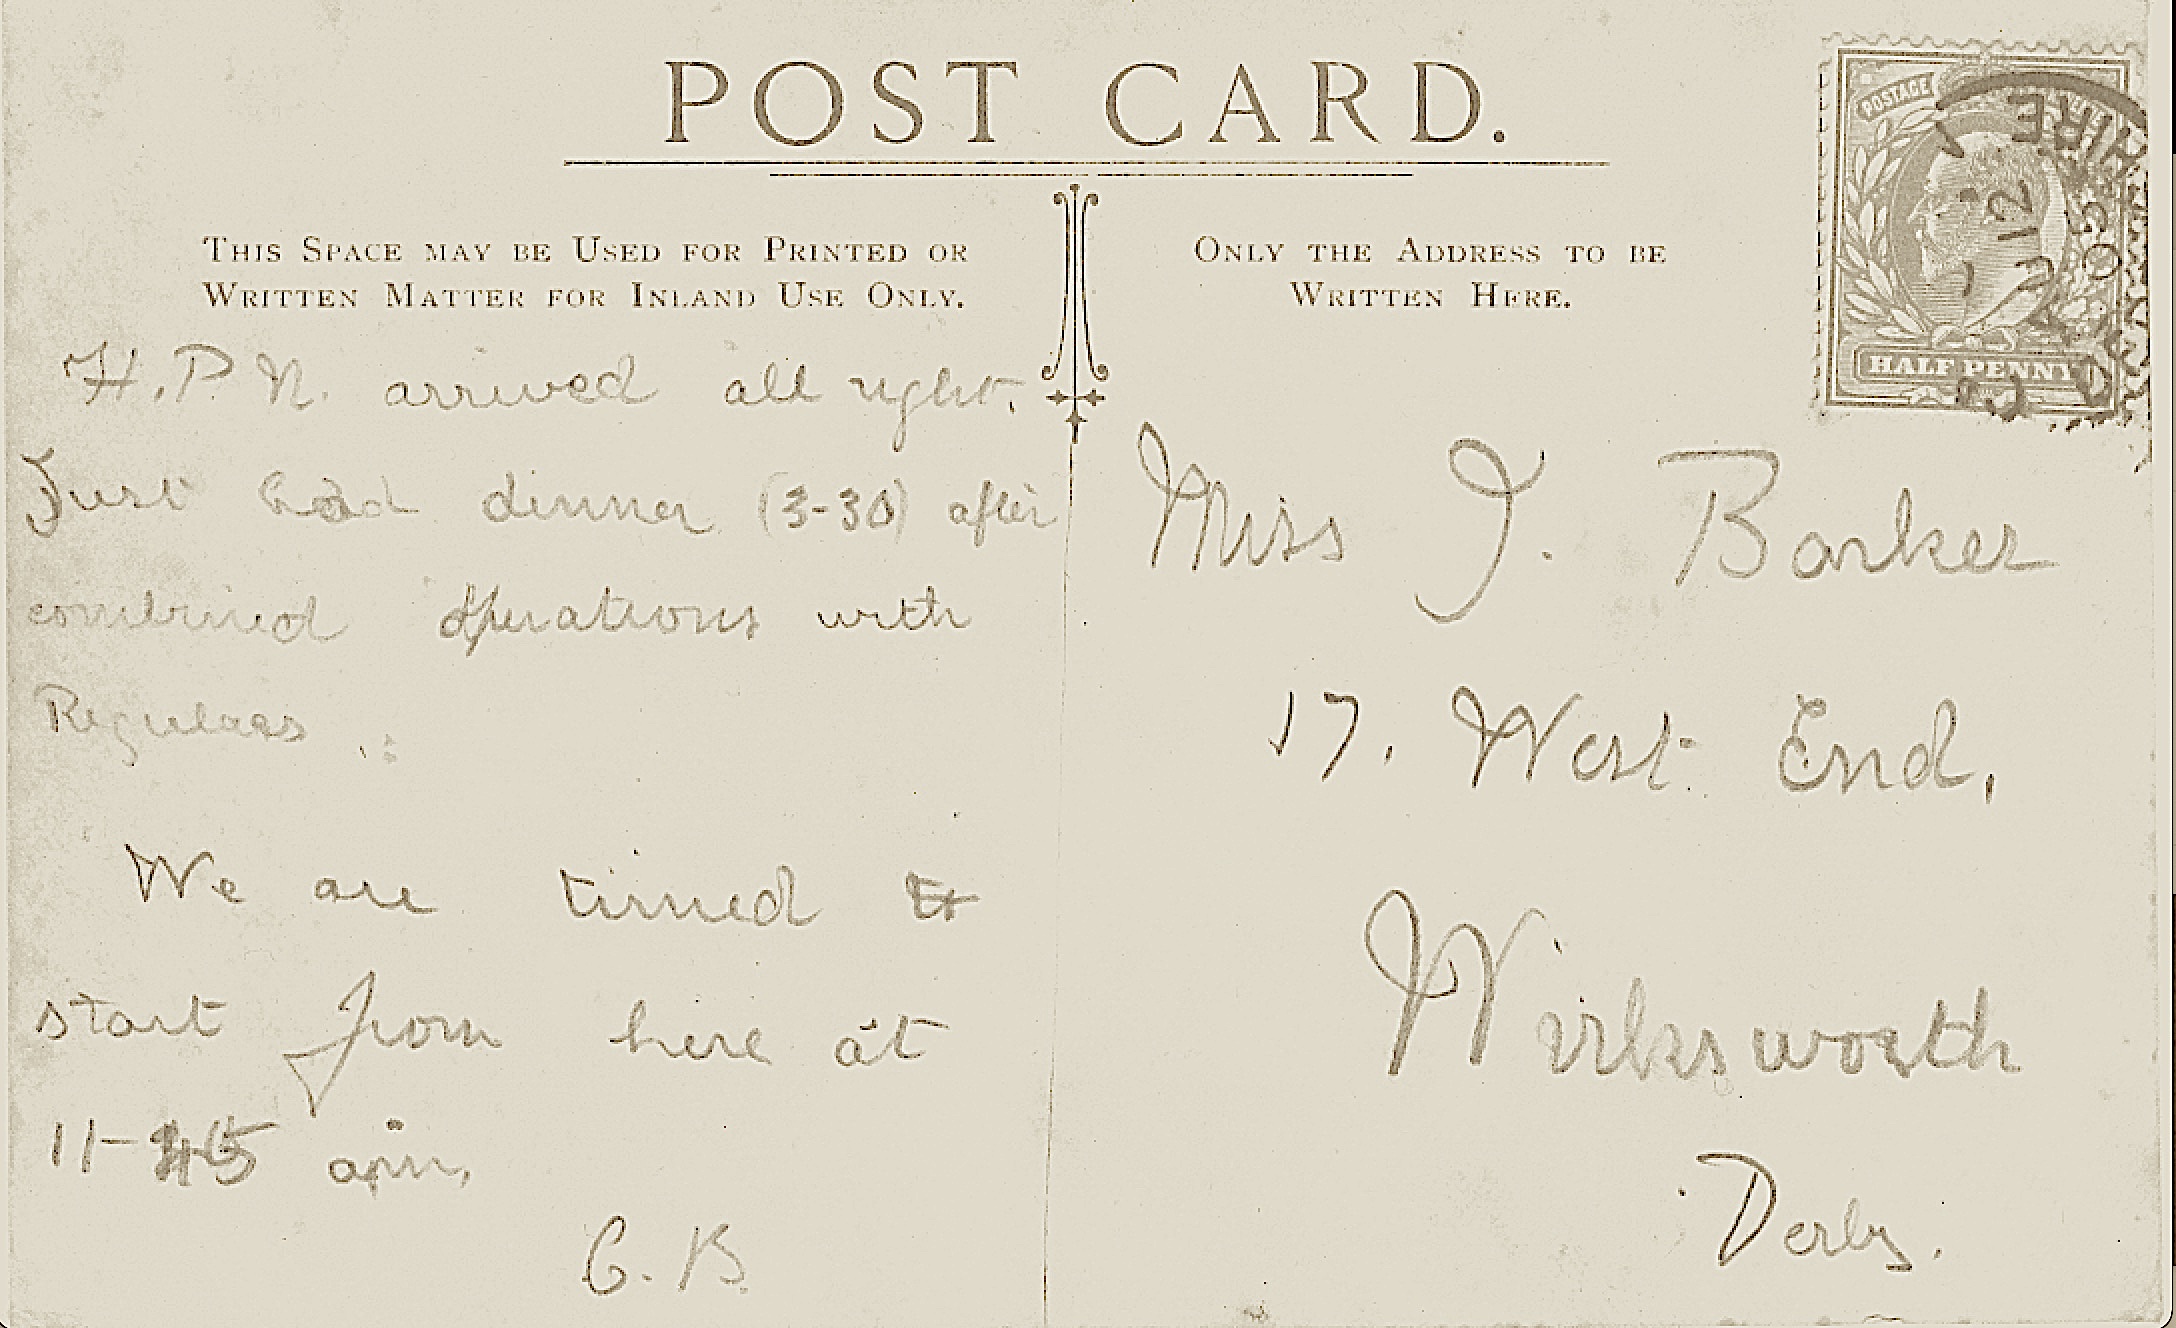 POST CARD.
THIS SPACE MAY BE USED FOR PRINTED OR
WRITTEN MATTER FOR INLAND USE ONLY.
H.P.N. arrived all right.
Just had dinner (3-30) after
combined operations with
Regulars
We are timed to
start from here at
11-45 am.
C. B.
ONLY THE ADDRESS TO BE
WRITTEN HERE.
Miss J. Barker
17, West End,
Wirksworth
Derby.
POSTAGE
HALF PENNY
12